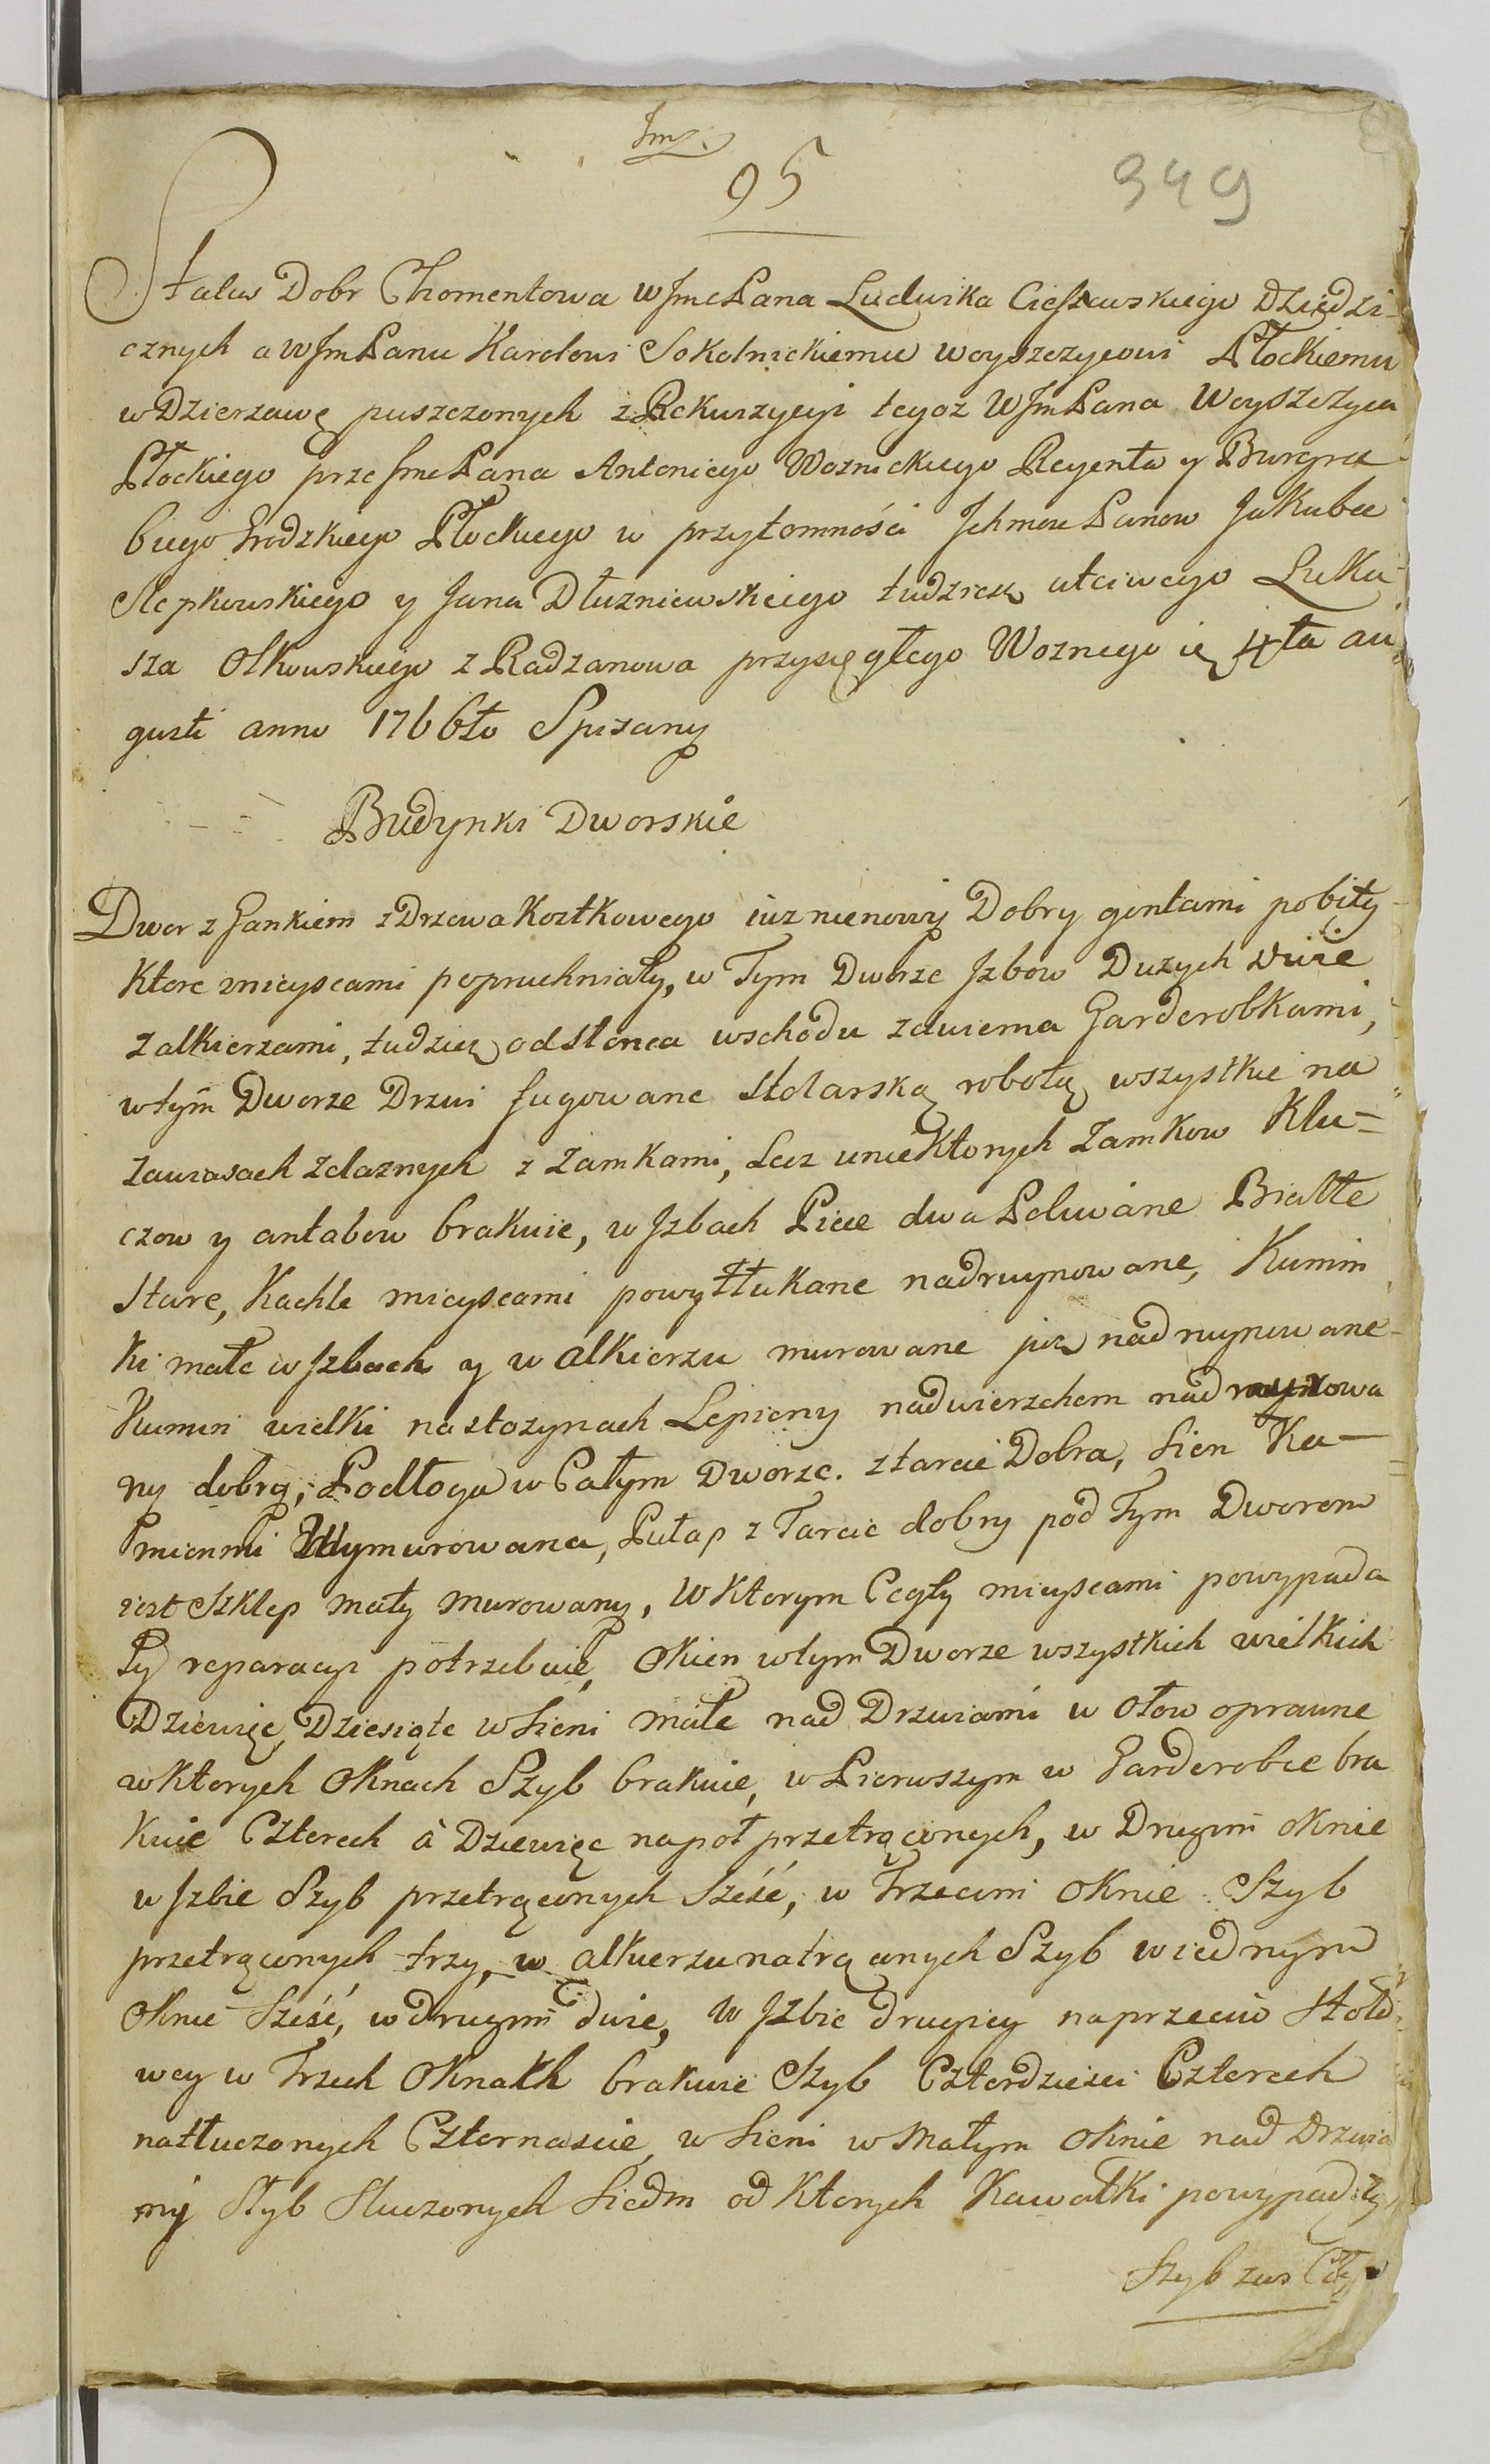 Imp:
95
949
Status Dobr Chomentowa WJmcPana Ludwika Cieszewskiego Dziedzi-
cznych a WJmPanu Karolowi Sokolnickiemu woyszczycowi Płockiemu
w Dzierzawę puszczonych z Rekwizycyi tegoż WJmPana Woyszczyca
Płockiego prze JmcPana Antoniego Woznickiego Regenta y Burgra-
biego Grodzkiego Płockiego w przytomności Ichmow Panow Jakuba
Slepkowskiego y Jana Dłuzniewskiego tudziesz utciwego Luka-
sza Olkowskiego z Radzanowa przysięgłego Woznego ię 4ta au
gusti anno 1766to Spisany
Budynki Dworskie
Dwor z Gankiem z Drzewa Kostkowego iuz nienowy Dobry gontami pobity
Ktore mieyscami popruchniały, w Tym Dworze Jzbow Duzych dwie
z alkierzami, tudziesz od słonca wschodu z dwiema Garderobkami,
w tym Dworze Drzwi fugowane stolarską robotą wszystkie na
zawiasach zelaznych z zamkami, Lecz u niektorych Zamkow Klu=
czow y antabow brakuie, w Jzbach Piece dwa Polwane Białłe
Stare, Kachle mieyscami powytłukane nadruynowane, Kumin
ki małe w Jzbach y w alkierzu murowane jusz nadruynowane
Kumin wielki na stozynach Lepiony nad wierzchem nadruynowa
ny dobry, Podłoga w Całym Dworze z tarcic Dobra, Sien Ka-
mienmi Wymurowana, Pułap z Tarcic dobry pod Tym Dworem
iest Szklep mały murowany, W Ktorym Cegły mieyscami powypada
ły reparacyi potrzebuie, Okien w tym Dworze wszystkich wielkich
Dziewięc, Dziesiąte w Sieni małe nad Drzwiami w ołow oprawne
w Ktorych Oknach Szyb brakuie, w Pierwszym w Garderobie bra
kuie Czterech à Dziewięc napoł przetrąconych, w Drugim oknie
w Jzbie Szyb przetrąconych Sześć, w Trzecim Oknie Szyb
przetrąconych trzy, w alkierzu natrąconych Szyb w iednym
Oknie Sześć, w drugim dwie, W Jzbie drugiey naprzeciw Stoło
wey w Trzech Oknach brakuie Szyb Czterdziesci Czterech
natłuczonych Czternascie w Sieni w Małym Oknie nad Drzwia
mi Szyb Stuczonych Siedm od Ktorych Kawałki powypadały
Szyb zas